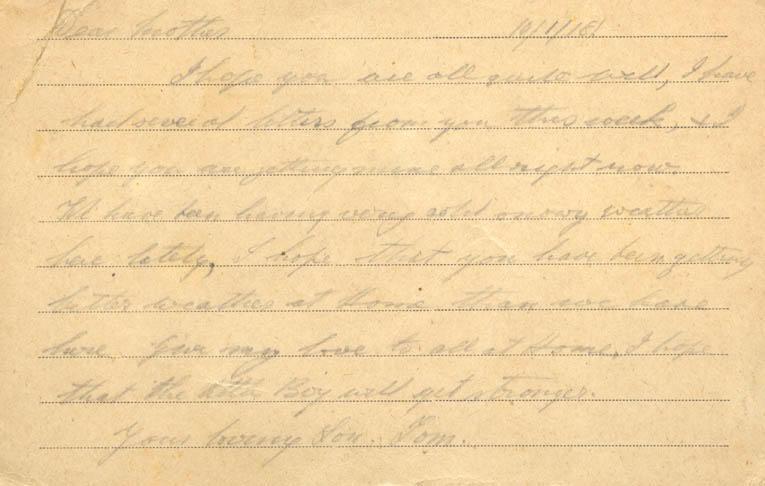 Dear Mother 10/1/18
I hope you are all quite well, I have
had several letters from you this week, & I
hope you are getting mine all right now.
We have been having very cold snowy weather
here lately, I hope that you have been getting
better weather at Home than we have
here Give my love to all at Home, I hope
that the little Boy will get stronger.
Your loving Son. Tom.